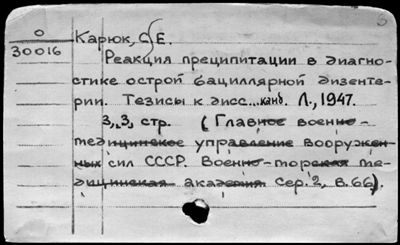 5
О
30016
Карюк, С.Е.
Реакция преципитации в диагно-
стике острой бациллярной дизенте-
рии. Тезисы к дисс...канд. Л., 1947.
3,3, стр. (Главное военно-
медицинское управление вооружен-
ных сил СССР. Военно-морская ме-
дицинская академия сер.2, в.66).